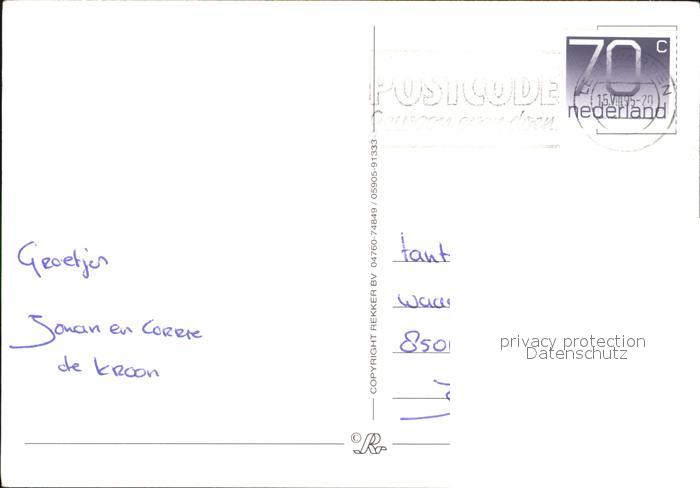 70 c
nederland
POSTCODE
Gewoon even doen.
15.VIII.95-20
COPYRIGHT REKKER BV 04760-74849 / 05905-91333
Groetjes
Johan en Corrie
de Kroon
tant
waa
850
privacy protection
Datenschutz
© Rr